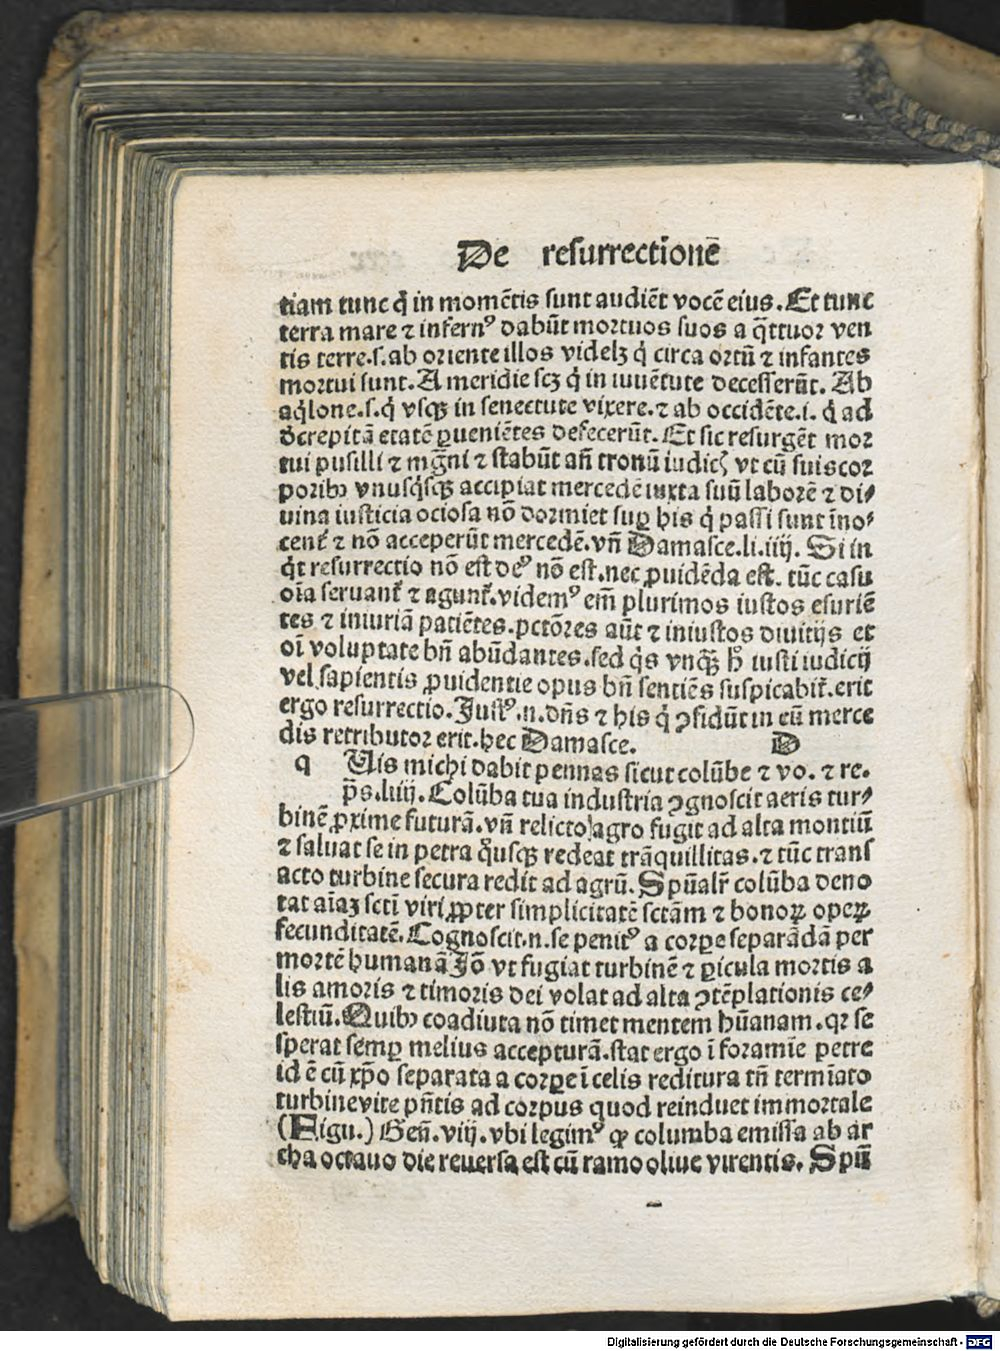 De resurrectionē
tiam tunc q̄ in momētis sunt audiēt vocē eius. Et tunc
terra mare ⁊ infernꝰ dabūt mortuos suos a q̄ttuor ven
tis terre.s. ab oriente illos videlꝫ q̄ circa ortū ⁊ infantes
mortui sunt. A meridie scꝫ q̄ in iuuētute decesserūt. Ab
aq̇lone.s. q̄ vsqꝫ in senectute vixere. ⁊ ab occidēte.i. q̄ ad
decrepitā etatē ꝑueniētes defecerūt. Et sic resurgēt mor
tui pusilli ⁊ mg̃ni ⁊ stabūt añ tronū iudicꝭ vt cū suis cor
poribꝰ vnusq̇sqꝫ accipiat mercedē iuxta suū laborē ⁊ di⸗
uina iusticia ociosa nō dormiet suꝑ his q̄ passi sunt īno⸗
cent᷑ ⁊ nō acceperūt mercedē. vñ Damasce. li. iiij. Si in
qͥt resurrectio nō est deꝰ nō est. nec ꝓuidēda est. tūc casu
oīa seruant᷑ ⁊ agunt᷑. videmꝰ em̄ plurimos iustos esuriē
tes ⁊ iniuriā patiētes. pctōres aūt ⁊ iniustos diuitijs et
oī voluptate bñ abūdantes. sed q̇s vnqꝫ̄ hͦ iusti iudicij
vel sapientis ꝓuidentie opus bñ sentiēs suspicabit᷑. erit
ergo resurrectio. Iustꝰ .n. dñs ⁊ his q̄ ꝯfidūt in eū merce
dis retributor erit. hec Damasce. D
q Uis michi dabit pennas sicut colūbe ⁊ vo. ⁊ re.
p̄s. liiij. Colūba tua industria ꝯgnoscit aeris tur⸗
binē ꝓxime futurā. vñ relicto agro fugit ad alta montiū
⁊ saluat se in petra qͦusqꝫ redeat trāquillitas. ⁊ tūc trans
acto turbine secura redit ad agrū. Spūalr̄ colūba deno
tat aīaꝫ sctī viri ꝓpter simplicitatē sctām ⁊ bonoꝝ opeꝝ
fecunditatē. Cognoscit .n. se penitꝰ a corꝑe separādā per
mortē humanā Iō vt fugiat turbinē ⁊ ꝑicula mortis a
lis amoris ⁊ timoris dei volat ad alta ꝯtēplationis ce⸗
lestiū. Quibꝰ coadiuta nō timet mentem hūanam. qꝛ se
sperat semꝑ melius accepturā. stat ergo ī foramīe petre
id ē cū xp̄o separata a corꝑe ī celis reditura tñ termīato
turbine vite pñtis ad corpus quod reinduet immortale
(Figu.) Geñ. viij. vbi legimꝰ ꝙ columba emissa ab ar
cha octauo die reuersa est cū ramo oliue virentis. Spūa
Digitalisierung gefördert durch die Deutsche Forschungsgemeinschaft - DFG